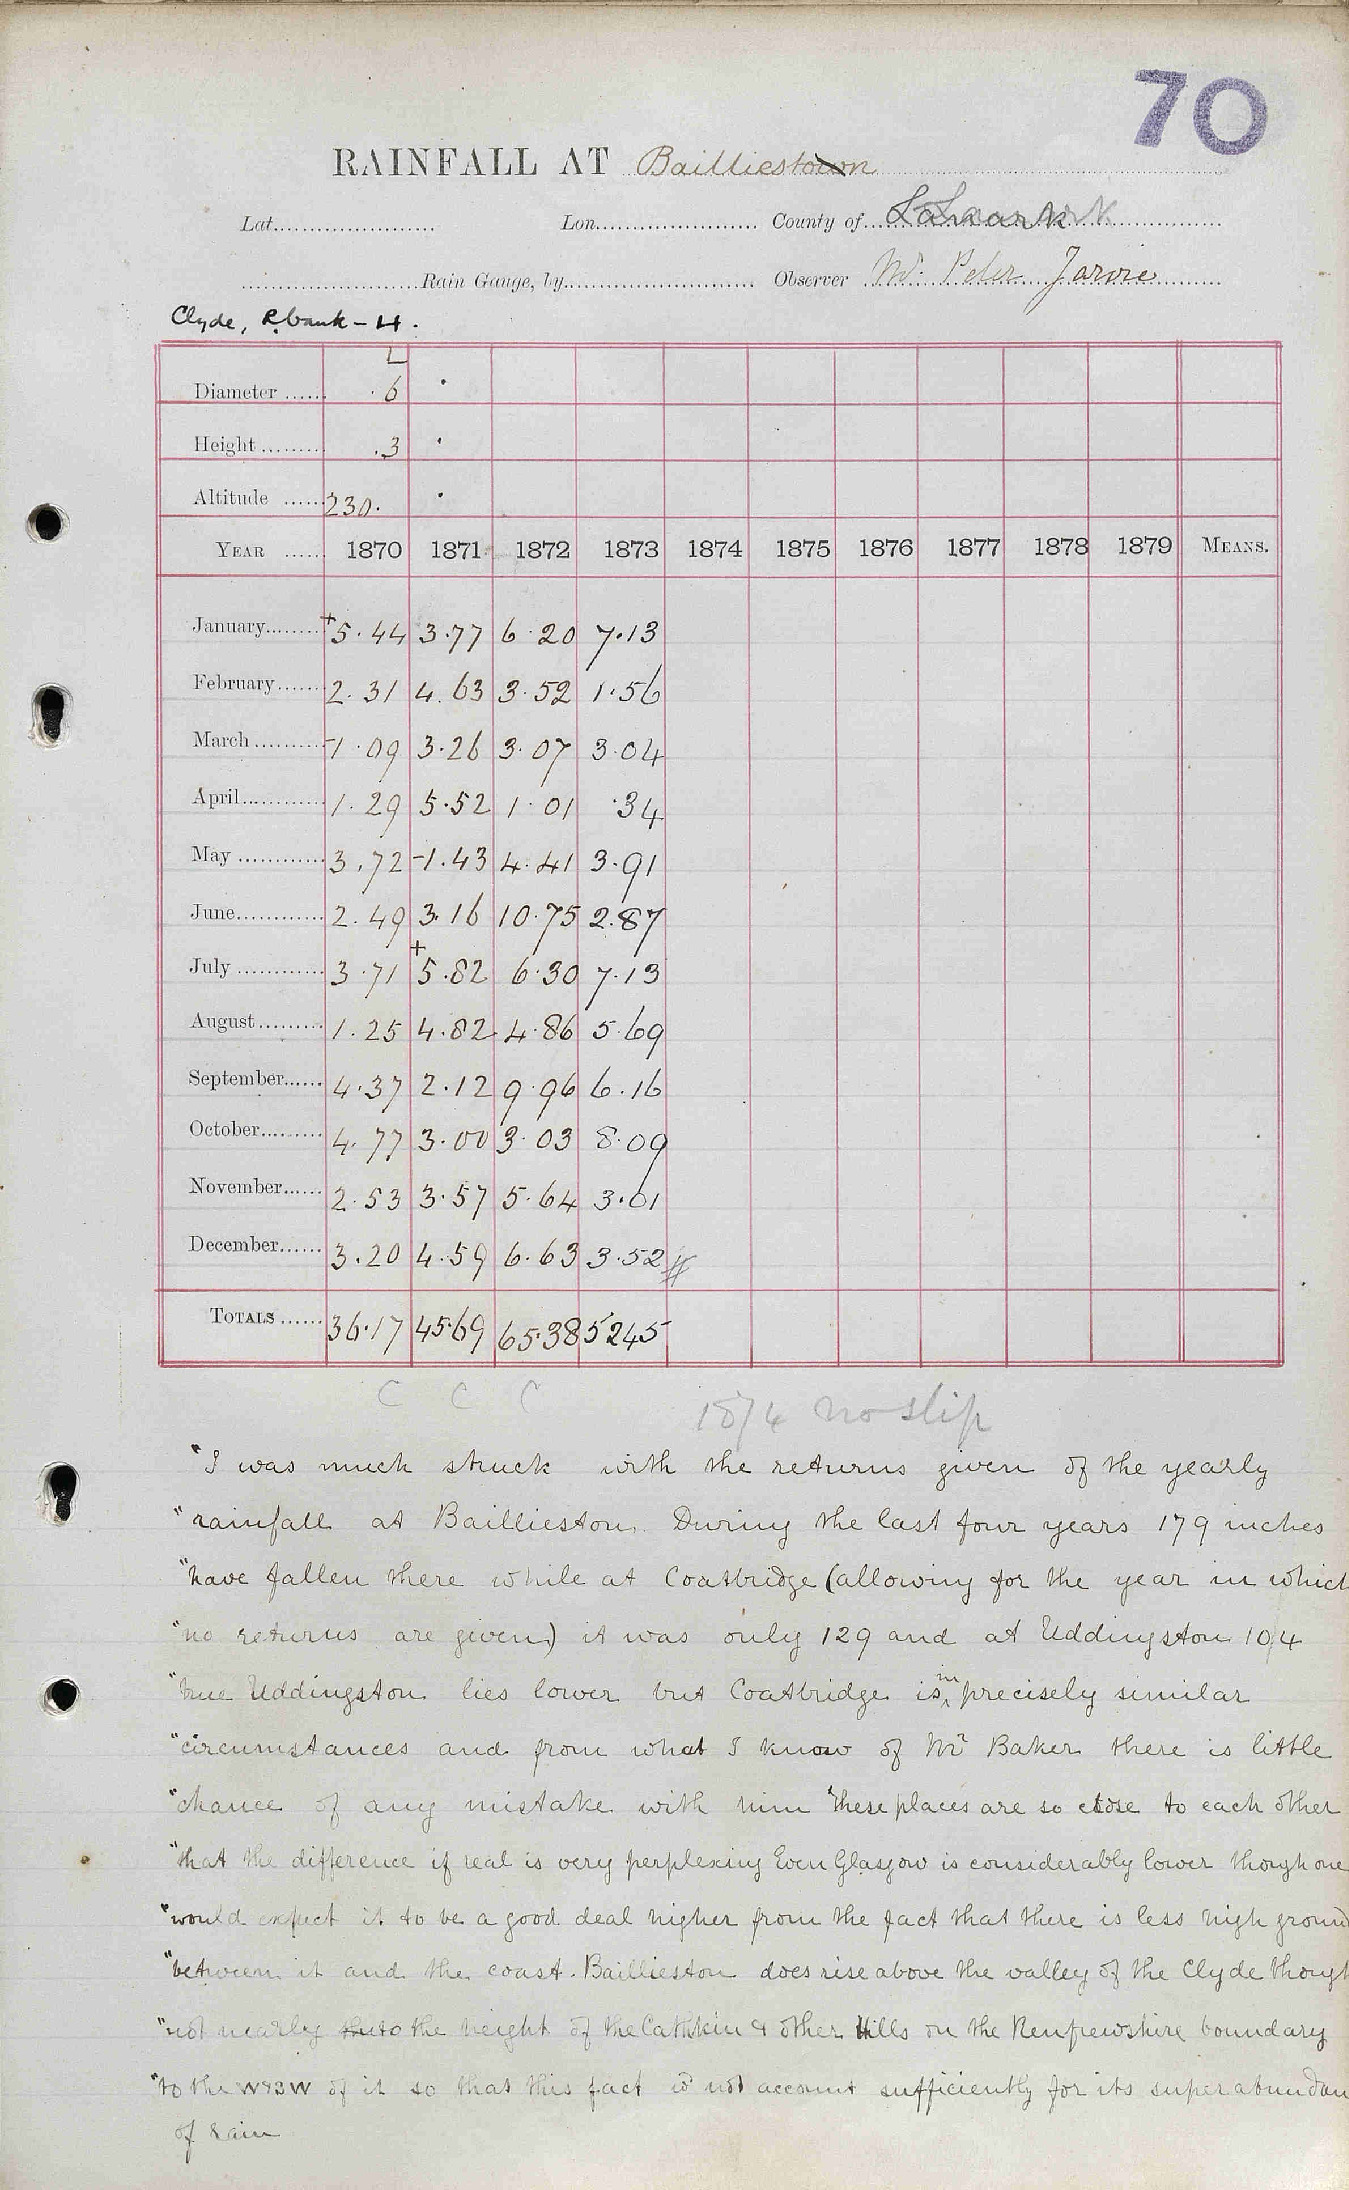 70
RAINFALL AT Bailliestown
Lat. Lon. County of Lanark
Rain Gauge, by Observer Mr. Peter Jarvie
Clyde, R. bank - H.
L
Diameter ...... . 6 .
Height ......... .3 .
Altitude ...... 230. .
YEAR ...... 1870 1871 1872 1873 1874 1875 1876 1877 1878 1879 MEANS.
January........ +5.44 3.77 6.20 7.13
February....... 2.31 4.63 3.52 1.56
March .......... -1.09 3.26 3.07 3.04
April............ 1.29 5.52 1.01 .34
May ............ 3.72 -1.43 4.41 3.91
June............ 2.49 3.16 10.75 2.87
July ............ 3.71 +5.82 6.30 7.13
August......... 1.25 4.82 4.86 5.69
September...... 4.37 2.12 9.96 6.16
October......... 4.77 3.00 3.03 8.09
November...... 2.53 3.57 5.64 3.01
December...... 3.20 4.59 6.63 3.52 //
TOTALS ...... 36.17 45.69 65.38 52.45
C C C 1874 no slip
"I was much struck with the returns given of the yearly
"rainfall at Baillieston. During the last four years 179 inches
"have fallen there while at Coatbridge (allowing for the year in which
"no returns are given) it was only 129 and at Uddingston 104
"true Uddingston lies lower but Coatbridge is in precisely similar
"circumstances and from what I know of Mr Baker there is little
"chance of any mistake with him "these places are so close to each other
"that the difference if real is very perplexing Even Glasgow is considerably lower though one
"would expect it to be a good deal higher from the fact that there is less high ground
"between it and the coast. Baillieston does rise above the valley of the Clyde though
"not nearly to the height of the Cathkin & other Hills on the Renfrewshire boundary
"to the W & SW of it so that this fact does not account sufficiently for its superabundan
of rain